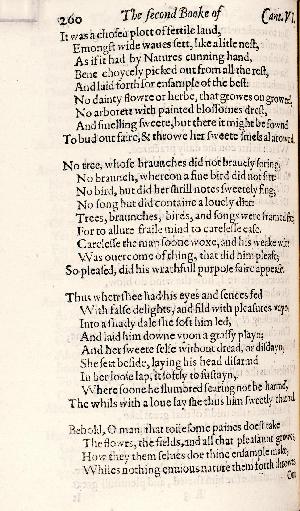 260 The second Booke of Cant. VI.
It was a chosen plott of fertile land,
Emongst wide waues sett, like a litle nest,
As if it had by Natures cunning hand,
Bene choycely picked out from all the rest,
And laid forth for ensample of the best:
No dainty flowre or herbe, that growes on grownd,
No arborett with painted blossomes drest,
And smelling sweete, but there it might be fownd
To bud out faire, & throwe her sweete smels al arownd.
No tree, whose braunches did not brauely spring;
No braunch, whereon a fine bird did not sitt:
No bird, but did her shrill notes sweetely sing;
No song but did containe a louely ditt:
Trees, braunches, birds, and songs were framed fitt,
For to allure fraile mind to carelesse ease.
Carelesse the man soone woxe, and his weake witt
Was ouercome of thing, that did him please;
So pleased, did his wrathfull purpose faire appease.
Thus when shee had his eyes and sences fed
With false delights, and fild with pleasures vayn,
Into a shady dale she soft him led,
And laid him downe vpon a grassy playn;
And her sweete selfe without dread, or disdayn,
She sett beside, laying his head disarmd
In her loose lap, it softly to sustayn,
Where soone he slumbred fearing not be harmd,
The whils with a loue lay she thus him sweetly charmd.
Behold, O man, that toilesome paines doest take
The flowrs, the fields, and all that pleasaunt growes,
How they them selues doe thine ensample make,
Whiles nothing enuious nature them forth throwes